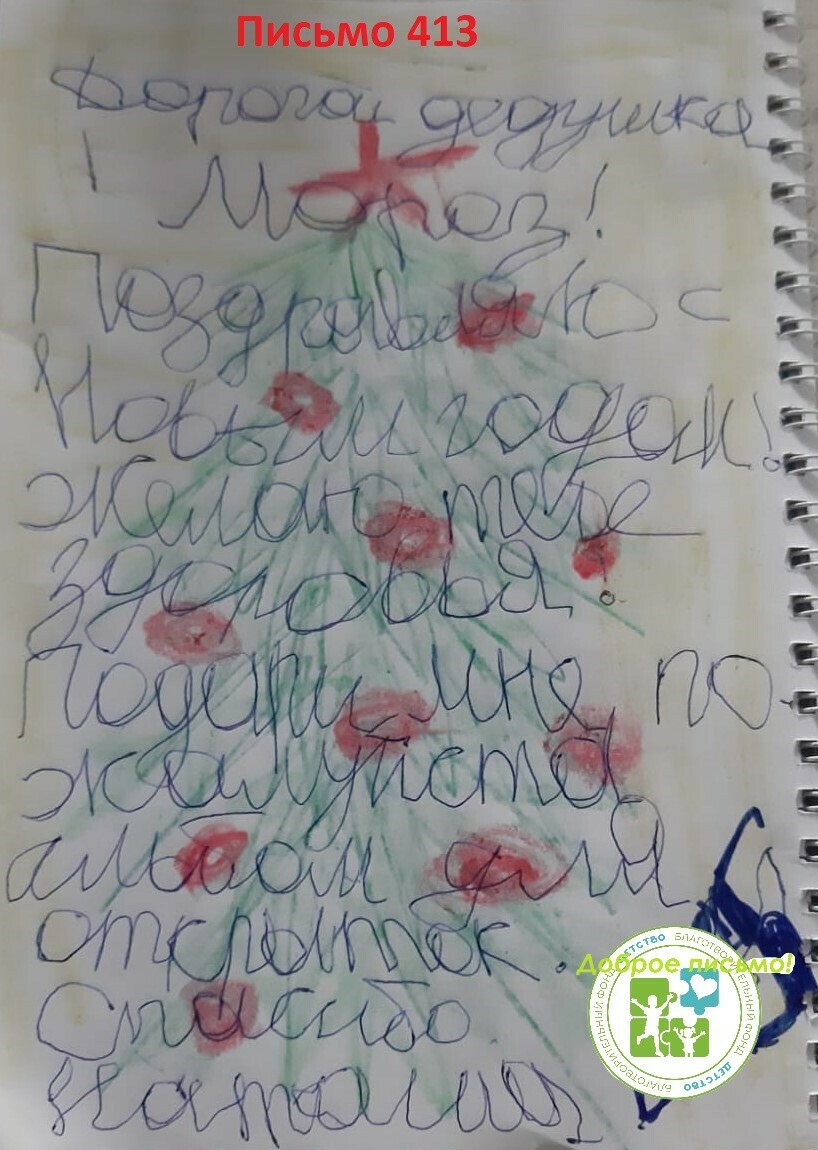 Письмо 413
Дорогой дедушка
Мороз!
Поздравляю с
Новым годом!
Желаю тебе
здоровья.
Подари мне по-
жалуйста
альбом для
открыток.
Спасибо
Наталия
Доброе письмо!
БЛАГОТВОРИТЕЛЬНЫЙ ФОНД ДЕТСТВО БЛАГОТВОРИТЕЛЬНЫЙ ФОНД ДЕТСТВО